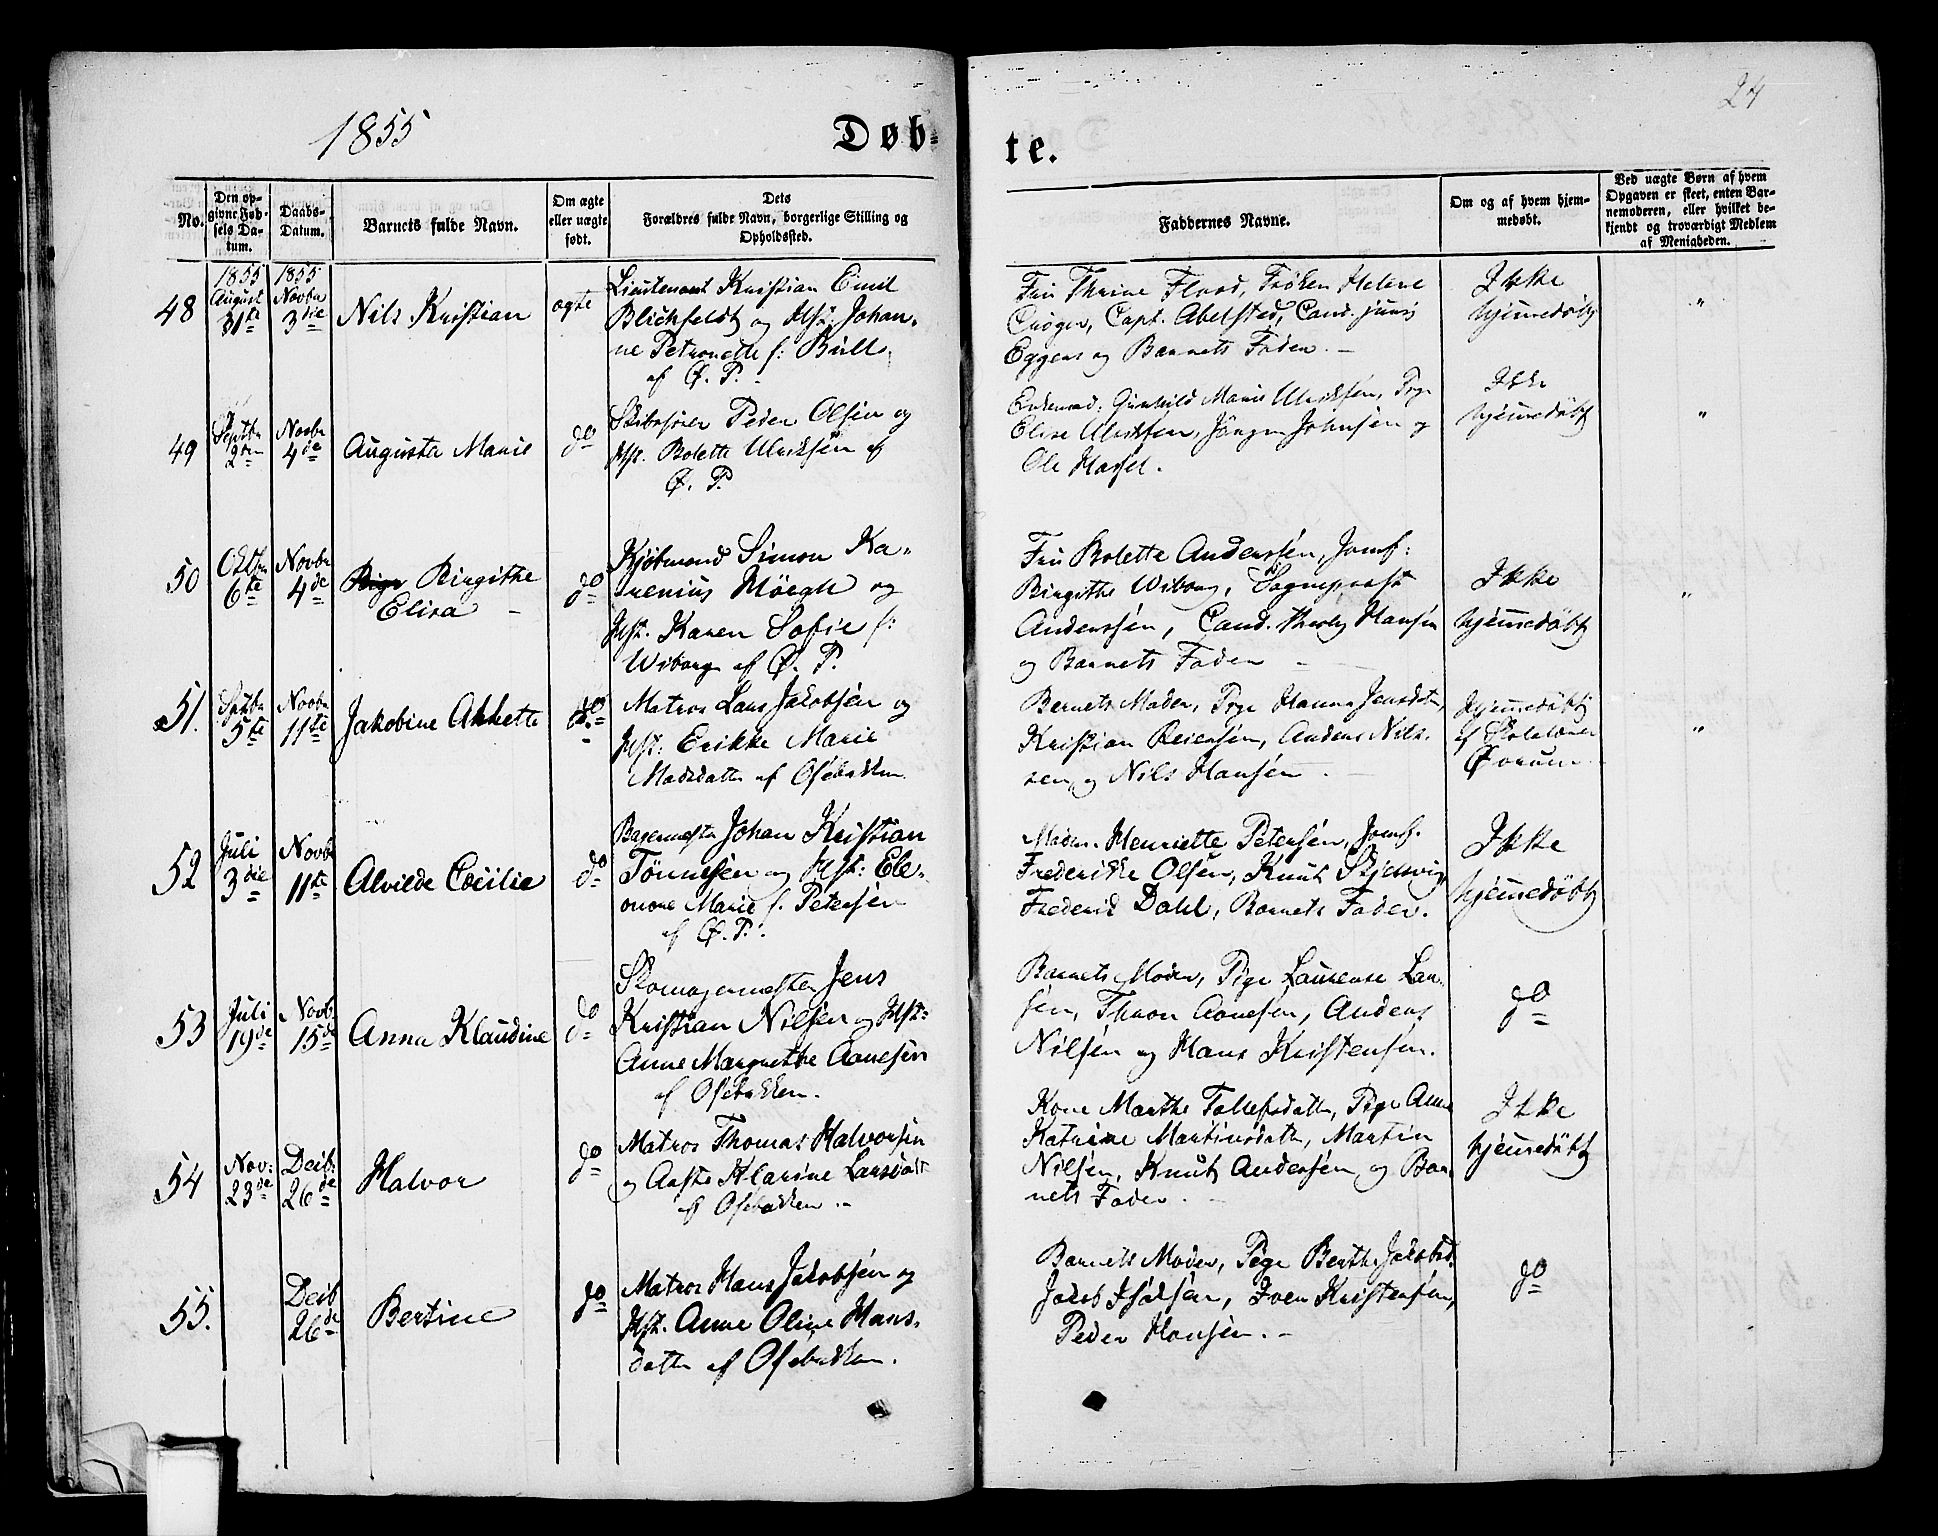 1855
Døb-
te.
24
No.
Den op-
givne Fød-
sels Da-
tum.
Daabs-
Datum.
Barnets fulde Navn.
Om ægte
eller uægte
født.
Dets
Forældres fulde Navn, borgerlige Stilling og
Opholdssted.
Faddernes Navne.
Om og af hvem hjem-
medøbt.
Ved uægte Børn af hvem
Opgaven er skeet, enten Bar-
nemoderen, eller hvilket be-
kjendt og troværdigt Medlem
af Menigheden.
48
1855
August
31te
1855
Novbr
3die
Nils Kristian
ægte
Lieutenant Kristian Emil
Blichfeldt og Hst: Johan-
ne Petronette f: Bull
af Ø. P.
Fru Thrine Flood, Frøken Helene
Crøger, Capt. Abelsted, Cand. juris
Eggers og Barnets Fader.
Ikke
hjemmedøbt
"
49
Septbr
2den
Novbr
4de
Augusta Marie
do
Skibsfører Peder Olsen og
Hst. Bolette Ulriksen af
Ø. P.
Enkemad: Gunhild Marie Ulriksen, Pige
Elise Ulriksen, Jørgen Johnsen og
Ole Hassel.
Ikke
hjemmedøbt
"
50
Oktbr
6te
Novbr
4de
Birgithe
Elisa
do
Kjøbmand Simon Ka-
renius Høegh og
Hst. Karen Sofie f:
Wiborg af Ø. P.
Fru Bolette Anderssen, Jomf:
Birgithe Wiborg, Sognepræst
Anderssen, Cand. theolg Hansen
og Barnets Fader
Ikke
hjemmedøbt
"
51.
Septbr
5te
Novbr
11te
Jakobine Abbette
do
Matros Lars Jakobsen og
Hst: Erikke Marie
Madsdatter af Osebakken
Barnets Moder, Pige Hanna Jensdatter,
Kristian Reiersen, Anders Nils-
sen, og Nils Hansen
Hjemmedøbt
af Skolelærer
Ørum
"
52
Juli
3die
Novbr
11te
Alvilde Cecilie
do
Bagermester Johan Kristian
Tønnesen og Hst: Ele-
onore Marie f. Petersen
af Ø. P.
Madm. Henriette Petersen, Jomf.
Frederikke Olsen, Knut Skjelsvig,
Frederik Dahl, Barnets Fader.
Ikke
hjemmedøbt
53
Juli
19de
Novb.
15de
Anna Klaudine
do
Skomagermester Jens
Kristian Nilsen og Hst:
Anne Margrethe Aanesen
af Osebakken.
Barnets Moder, Pige Laurense Lar-
sen, Thron Aanesen, Anders
Nilsen og Hans Kristensen.
do
54
Nov:
23de
Deib:
26de
Halvor
do
Matros Thomas Halvorsen
og Aaste Marine Larsdatt
af Osebakken.
Kone Marthe Tollefsdatter, Pige Anne
Katrine Martinsdatter, Martin
Nilsen, Knut Andersen og Bar-
nets Fader.
Ikke
hjemmedøbt
55.
Deib
26de
Bertine
do
Matros Hans Jakobsen og
Hst. Anne Oline Hans-
datter af Osebakken.
Barnets Moder, Pige Berthe Jakobsd.
Jakob Isaksen, Iver Kristensen,
Peder Hansen.
do